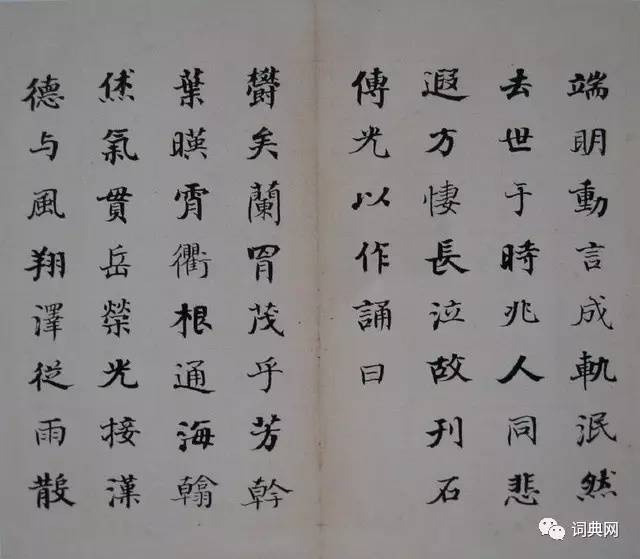 端明動言成軌泯然
去世于時兆人同悲
遐方悽長泣故刊石
傳光以作誦曰
欝矣蘭胄茂乎芳幹
葉暎霄衢根通海翰
烋氣貫岳榮光接漢
德与風翔澤從雨散
词典网